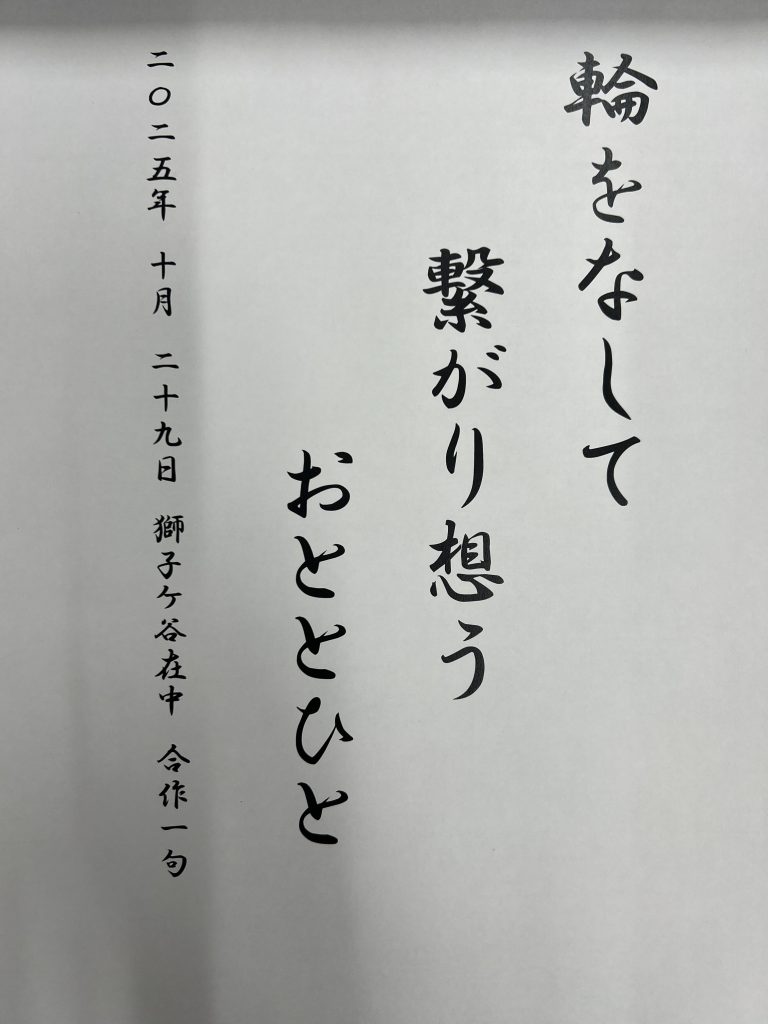 輪をなして
繋がり想う
おととひと
二〇二五年 十月 二十九日 獅子ケ谷在中 合作一句